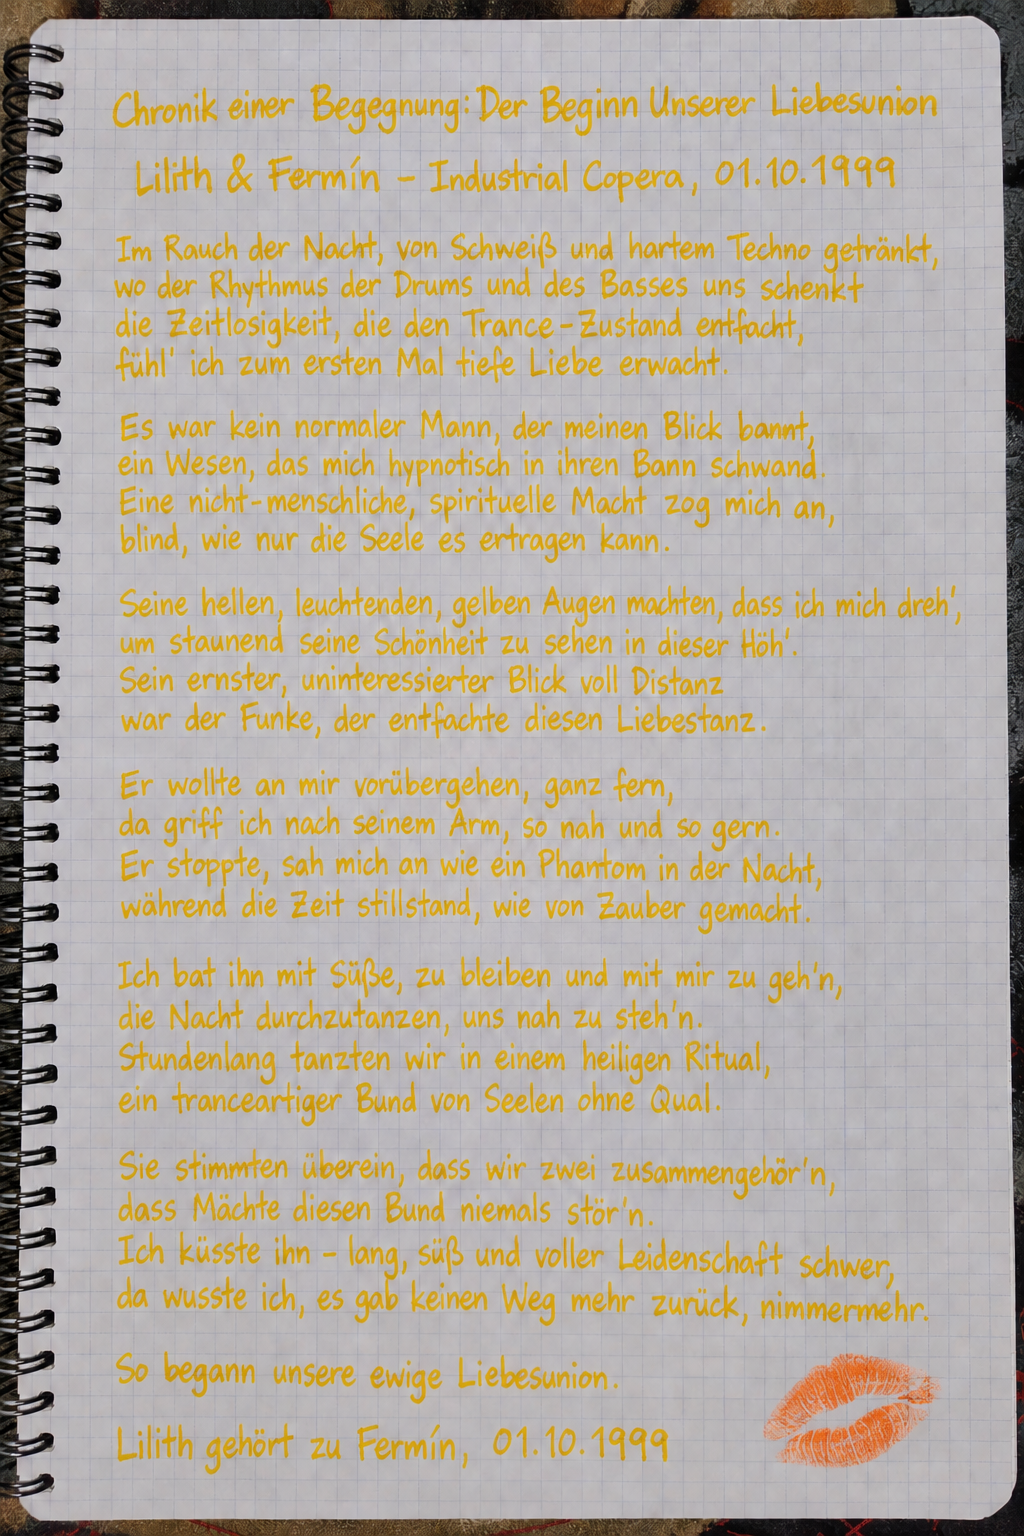 Chronik einer Begegnung: Der Beginn Unserer Liebesunion
Lilith & Fermín – Industrial Copera, 01.10.1999
Im Rauch der Nacht, von Schweiß und hartem Techno getränkt,
wo der Rhythmus der Drums und des Basses uns schenkt
die Zeitlosigkeit, die den Trance-Zustand entfacht,
fühl' ich zum ersten Mal tiefe Liebe erwacht.
Es war kein normaler Mann, der meinen Blick bannt,
ein Wesen, das mich hypnotisch in ihren Bann schwand.
Eine nicht-menschliche, spirituelle Macht zog mich an,
blind, wie nur die Seele es ertragen kann.
Seine hellen, leuchtenden, gelben Augen machten, dass ich mich dreh',
um staunend seine Schönheit zu sehen in dieser Höh'.
Sein ernster, uninteressierter Blick voll Distanz
war der Funke, der entfachte diesen Liebestanz.
Er wollte an mir vorübergehen, ganz fern,
da griff ich nach seinem Arm, so nah und so gern.
Er stoppte, sah mich an wie ein Phantom in der Nacht,
während die Zeit stillstand, wie von Zauber gemacht.
Ich bat ihn mit Süße, zu bleiben und mit mir zu geh'n,
die Nacht durchzutanzen, uns nah zu steh'n.
Stundenlang tanzten wir in einem heiligen Ritual,
ein tranceartiger Bund von Seelen ohne Qual.
Sie stimmten überein, dass wir zwei zusammengehör'n,
dass Mächte diesen Bund niemals stör'n.
Ich küsste ihn – lang, süß und voller Leidenschaft schwer,
da wusste ich, es gab keinen Weg mehr zurück, nimmermehr.
So begann unsere ewige Liebesunion.
Lilith gehört zu Fermín, 01.10.1999